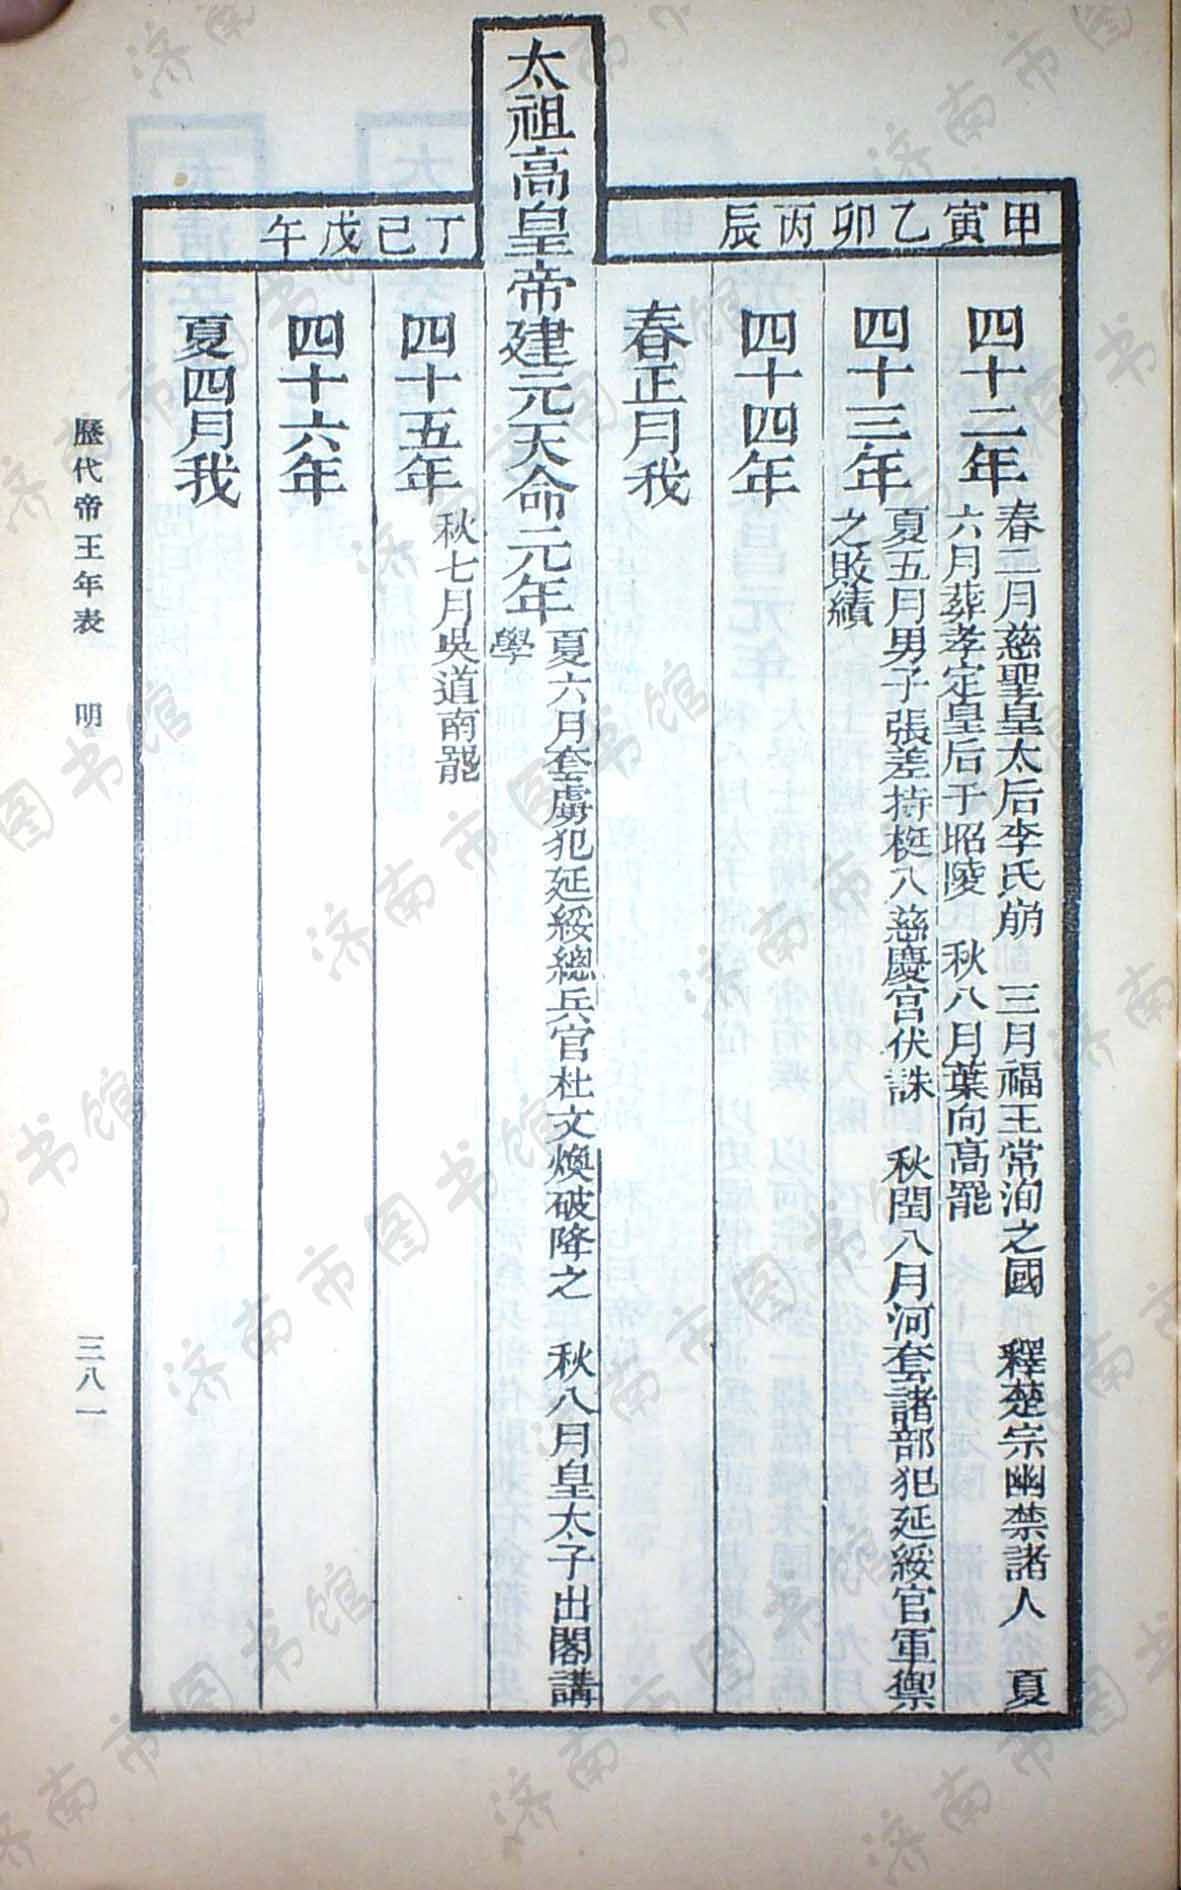 甲寅
四十二年
春二月慈聖皇太后李氏崩　三月福王常洵之國　釋楚宗幽禁諸人　夏
六月葬孝定皇后于昭陵　秋八月葉向高罷
乙卯
四十三年
夏五月男子張差持梃入慈慶宮伏誅　秋閏八月河套諸部犯延綏官軍禦
之敗績
丙辰
四十四年
春正月我
太祖高皇帝建元天命元年
夏六月套虜犯延綏總兵官杜文煥破降之　秋八月皇太子出閣講
學
丁巳
四十五年
秋七月吳道南罷
戊午
四十六年
夏四月我
歷代帝王年表　明
三八一
济南市图书馆